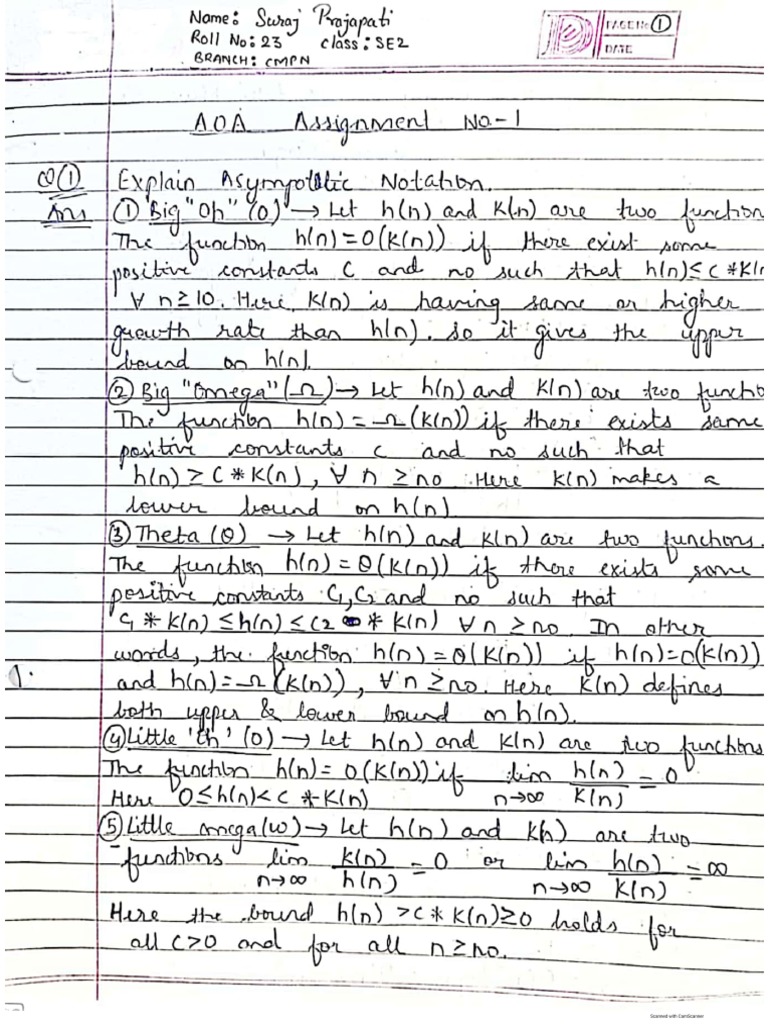 Name: Suraj Prajapati
Roll No: 23 class: SE2
BRANCH: CMPN
PAGE No 1
DATE
AOA Assignment No-1
Q① Explain Asymptotic Notation.
Ans ① Big "Oh" (O) → Let h(n) and K(n) are two function
The function h(n)=O(K(n)) if there exist some
positive constants C and no such that h(n)≤C*K(n
∀ n≥10. Here K(n) is having same or higher
growth rate than h(n). So it gives the upper
bound on h(n).
② Big "Omega" (Ω) → Let h(n) and K(n) are two functio
The function h(n)=Ω(K(n)) if there exists some
positive constants c and no such that
h(n) ≥ C*K(n), ∀ n ≥no Here K(n) makes a
lower bound on h(n)
③ Theta (θ) → Let h(n) and K(n) are two functions.
The function h(n)=θ(K(n)) if there exists some
positive constants C1, C2 and no such that
C1 * K(n) ≤h(n) ≤C2 * K(n) ∀n ≥no. In other
words, the function h(n)=θ(K(n)) if h(n)=O(K(n))
and h(n)=Ω(K(n)), ∀n ≥no. Here K(n) defines
both upper & lower bound on h(n).
④ Little 'Oh' (O) → Let h(n) and K(n) are two functions
The function h(n)= O(K(n)) if lim n→∞ h(n)/K(n) = 0
Here 0≤h(n)<c *K(n)
⑤ Little omega(w) → Let h(n) and K(n) are two
functions lim n→∞ K(n)/h(n) =0 or lim n→∞ h(n)/K(n) =∞
Here the bound h(n) >c* K(n)≥0 holds for
all c>0 and for all n ≥no.
Scanned with CamScanner